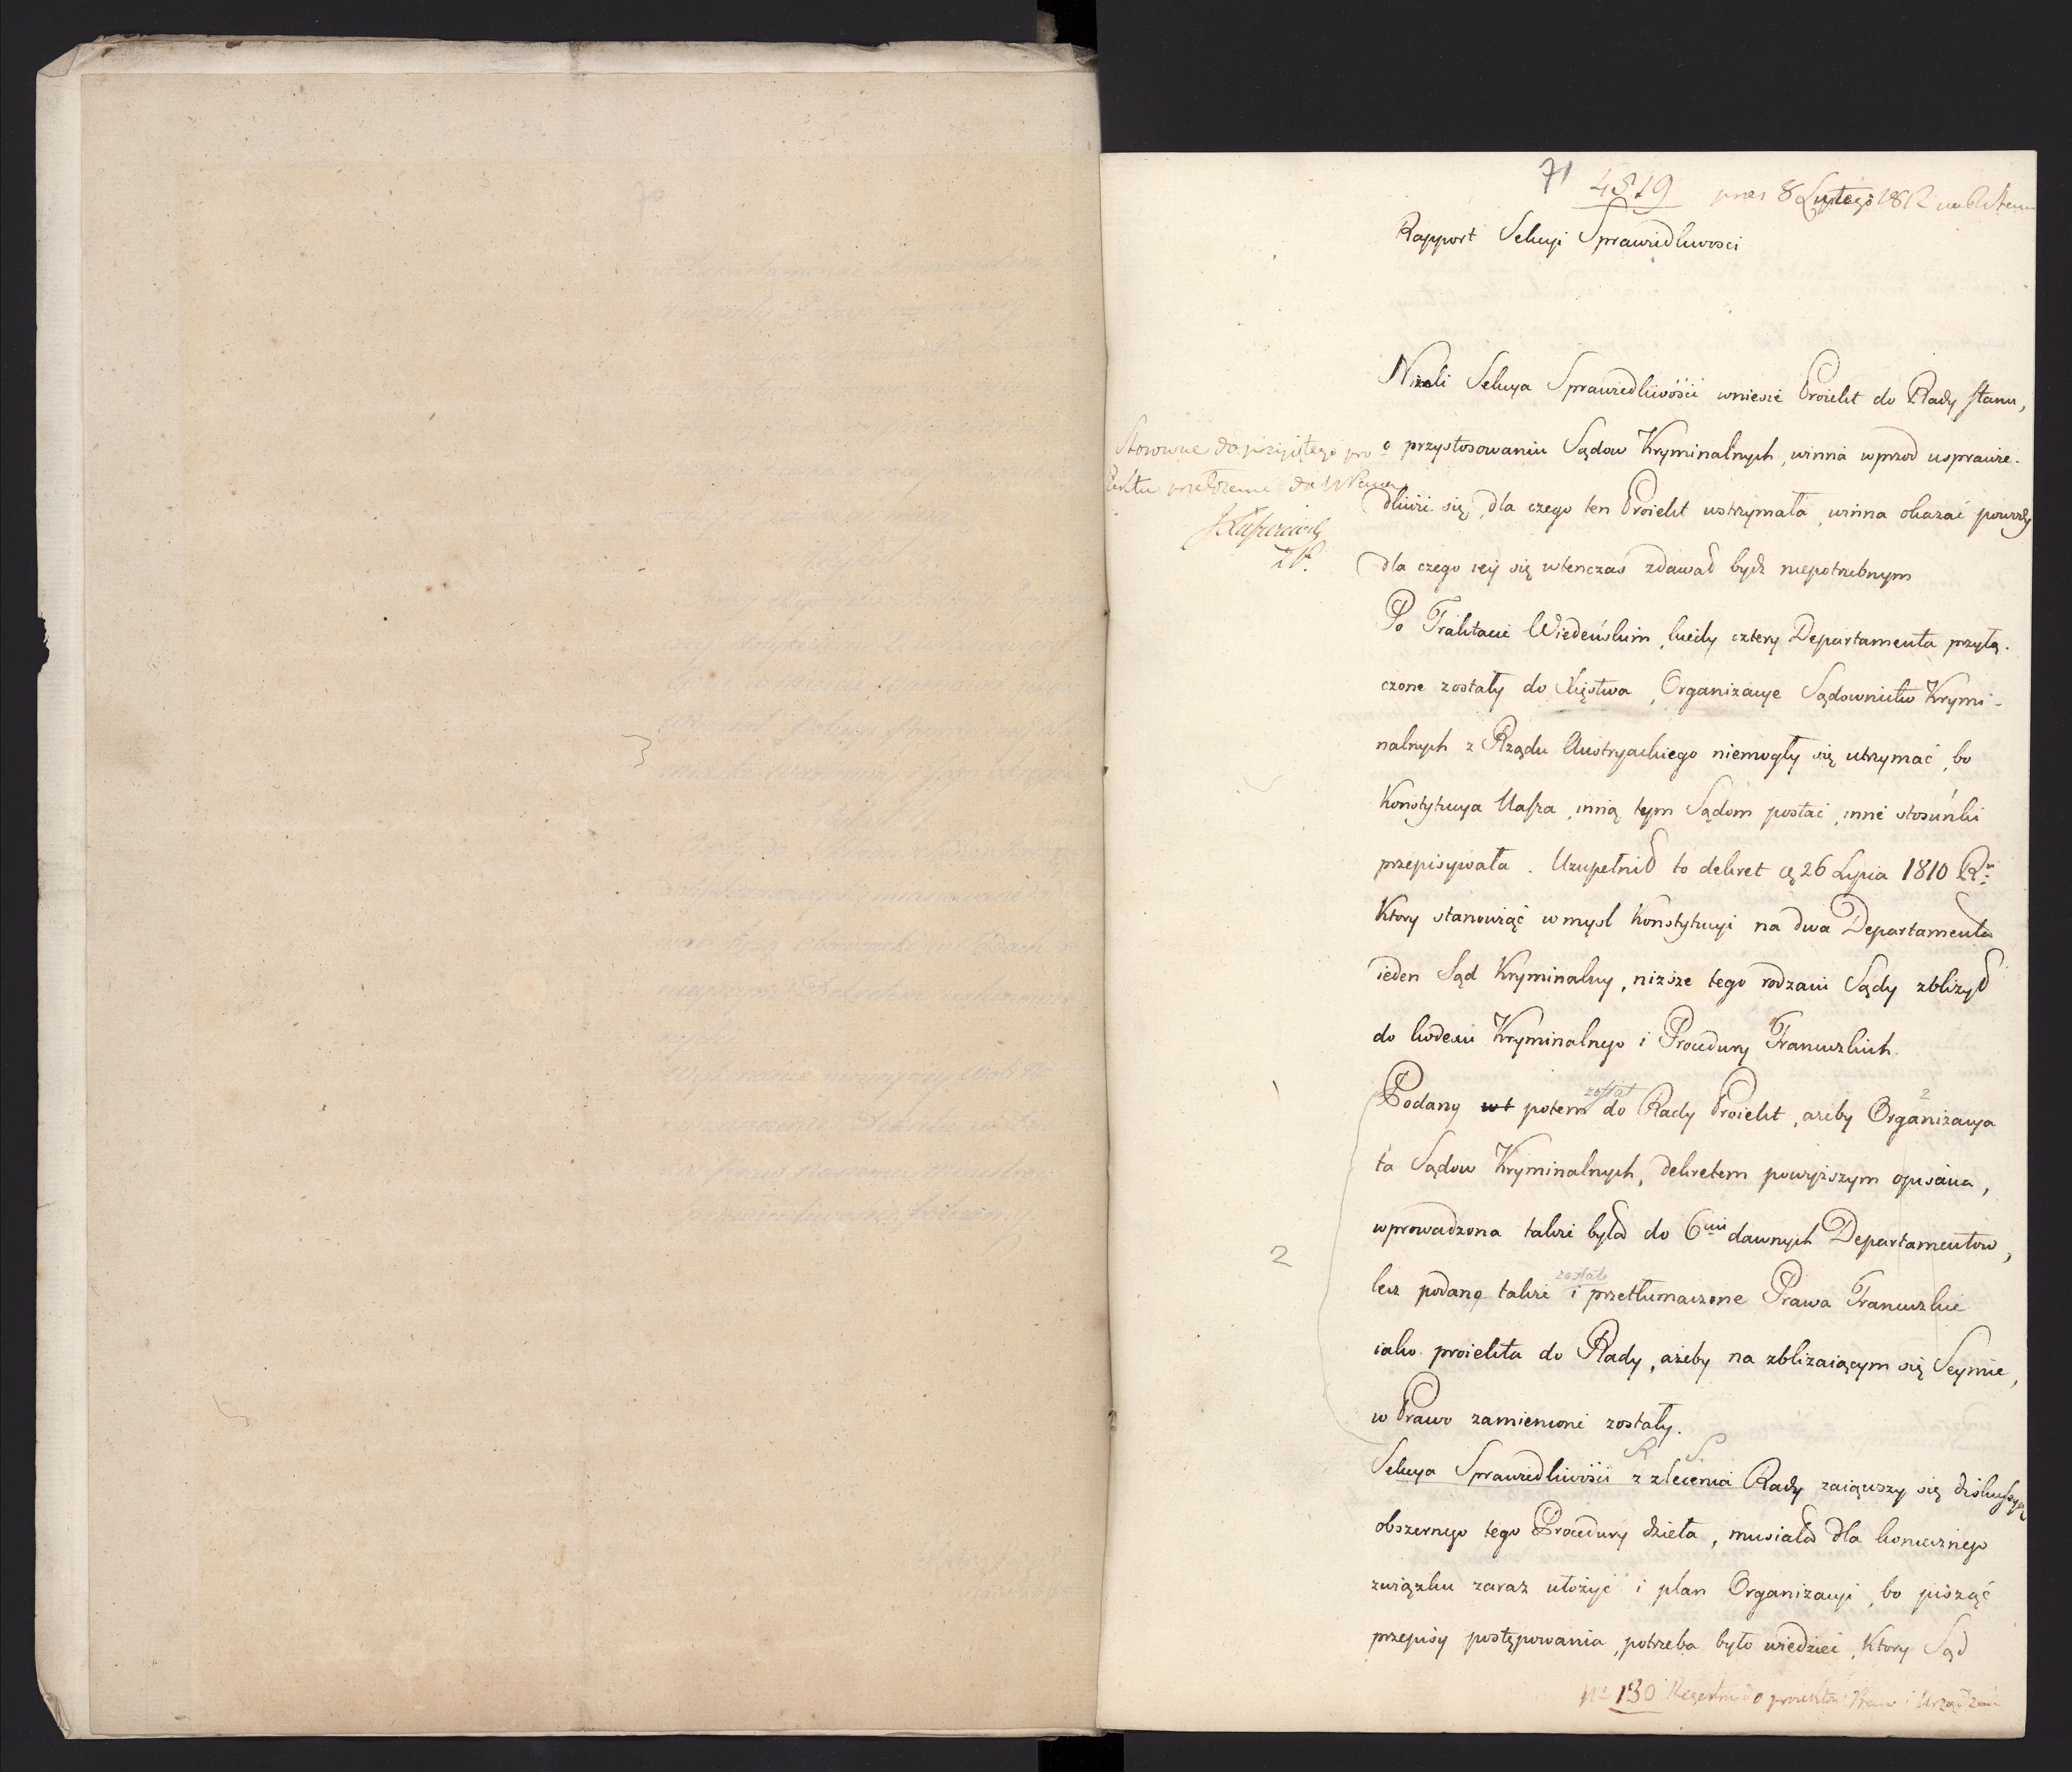 71
4519 pres 8 Lutego 1812
Rapport Sekcyi Sprawiedliwosci
Nizeli Sekcya Sprawiedliwości wniesie Proiekt do Rady stanu,
o przystosowaniu Sądow Kryminalnych, winna wprzod usprawie-
dliwić się, dla czego ten Proiekt wstrzymała, winna okazać powody
dla czego iey się wtenczas zdawał bydź niepotrzebnym
Stosowne do przyiętego pro
iektu
Po Traktacie Wiedeńskim, kiedy cztery Departamenta przyłą-
czone zostały do Xięstwa, Organizacye Sądownictw Krymi-
nalnych z Rządu Austryackiego niemogły się utrzymać, bo
Konstytucya Nasza, inną tym Sądom postać, inne stosunki
przepisywała. Uzupełnił to dekret 26 Lipca 1810 Ru
Ktory stanowiąc w mysl Konstytucyi na dwa Departamenta
ieden Sąd Kryminalny, nizsze tego rodzaiu Sądy zblizył
do kodexu Kryminalnego i Procedury Francuzkich.
został 2
Podany potem do Rady Proiekt, ażeby Organizacya
ta Sądow Kryminalnych, dekretem powyższym opisana,
wprowadzona takze była do 6ciu dawnych Departamentow,
2
zostały
lecz podano takze i przetłumaczone Prawa Francuzkie
iako proiekta do Rady, ażeby na zblizaiącym się Seymie,
w Prawo zamienione zostały.
R. S.
Sekcya Sprawiedliwości z zlecenia Rady zaiąwszy się diskussyą
obszernego tego Procedury dzieła, musiała dla koniecznego
związku zaraz ułożyć i plan Organizacyi, bo pisząc
przepisy postępowania, potrzeba było wiedzieć, Ktory Sąd
No 130 Regestru do proiektow Praw i Urządzeń